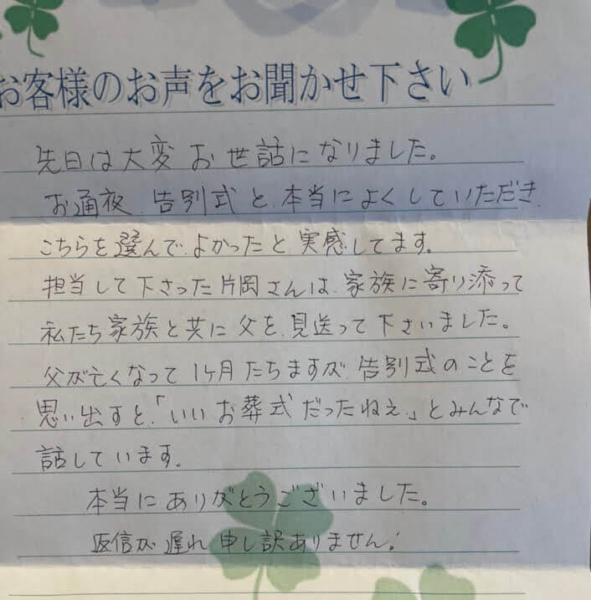 お客様のお声をお聞かせ下さい
先日は大変お世話になりました。
お通夜、告別式と、本当によくしていただき、
こちらを選んで、よかったと実感してます。
担当して下さった片岡さんは、家族に寄り添って
私たち家族と共に父を、見送って下さいました。
父が亡くなって1ヶ月たちますが、告別式のことを
思い出すと、「いいお葬式だったねぇ。」とみんなで
話しています。
本当にありがとうございました。
返信が遅れ申し訳ありません!